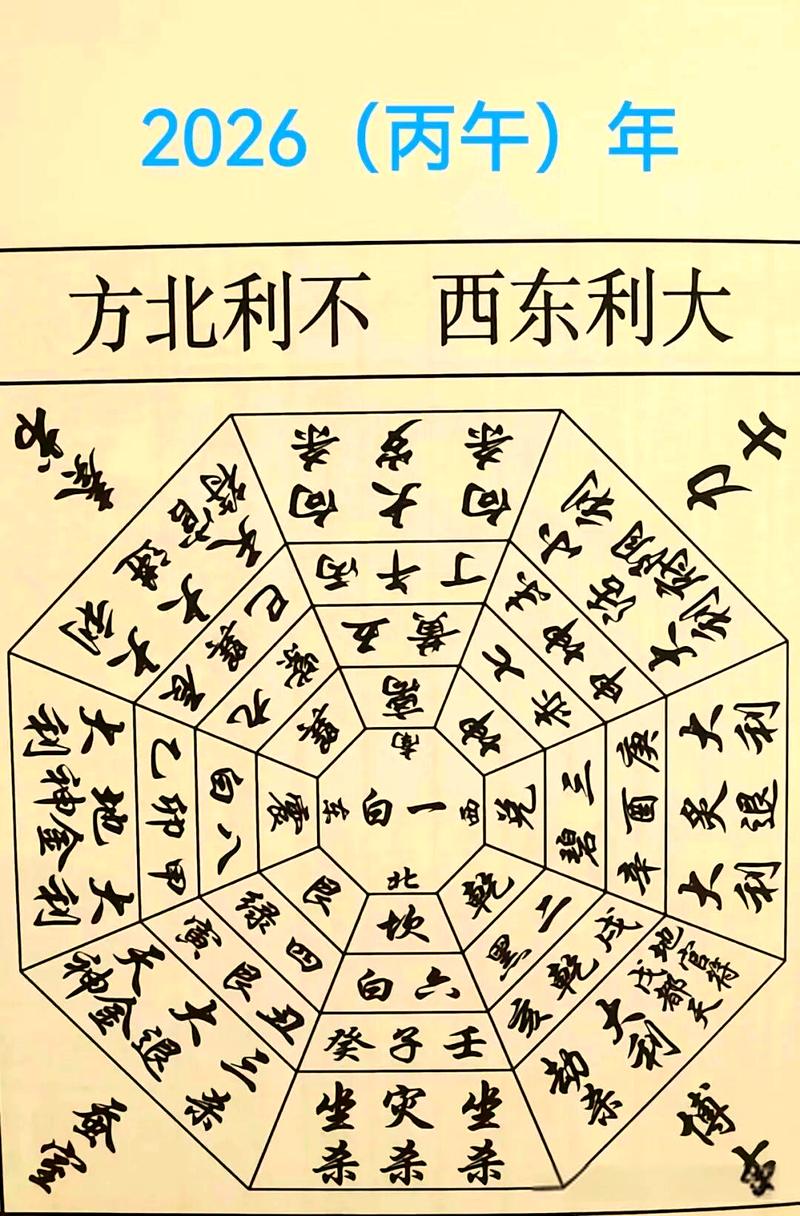 2026（丙午）年
大利东西 不利北方
奏书
力士
向杀
大岁
向杀
丙午丁
五黄
离
南
小利
大利
未坤申
七赤
坤
大利
炙退
大利
庚酉辛
三碧
兑
西
地官符
戊都天
大利
劫杀
戌乾亥
二黑
乾
坐杀
灾杀
坐杀
壬子癸
六白
坎
北
三杀
大退
天金神
丑艮寅
四绿
艮
大利
地金神
大利
甲卯乙
八白
震
东
大利
天官符
辰巽巳
九紫
巽
一白
蚕室
博士